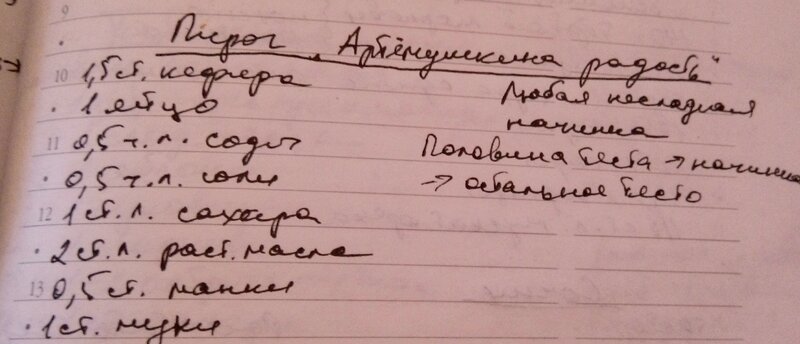 9
Пирог "Артёмушкина радость"
10 1,5 ст. кефира
1 яйцо
11 0,5 ч. л. соды
0,5 ч. л. соли
12 1 ст. л. сахара
2 ст. л. раст. масла
13 0,5 ст. манки
1 ст. муки
Любая несладкая
начинка
Половина теста → начинка
→ остальное тесто